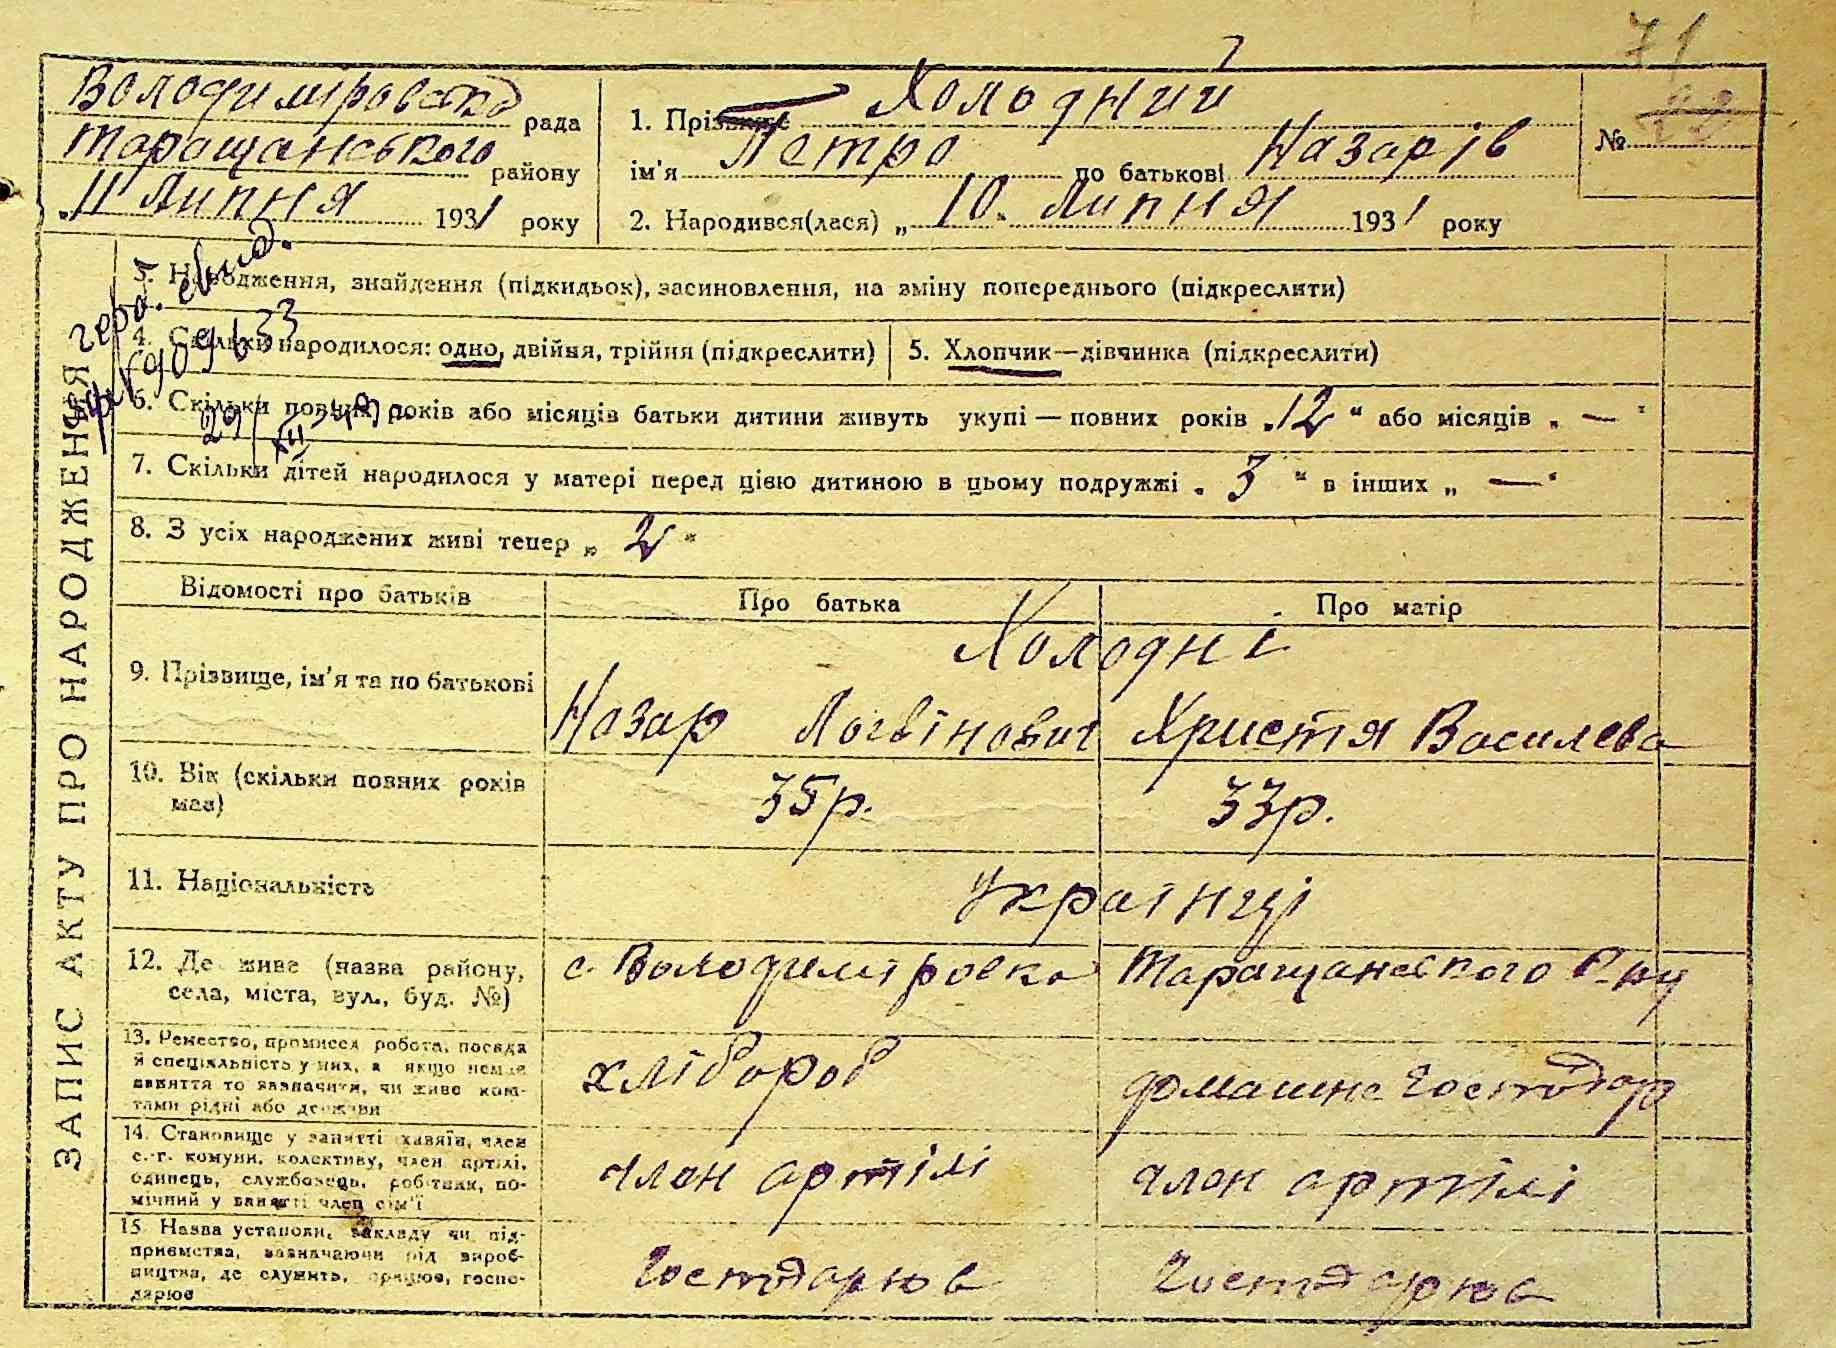 71
Володимировська рада
Таращанського району
„11 Липня 1931 року
1. Прізвище Холодний
ім'я Петро по батькові Назарів
2. Народився(лася) „ 10. Липня 1931 року
№
ЗАПИС АКТУ ПРО НАРОДЖЕННЯ
3. Народження, знайдення (підкидьок), засиновлення, на зміну попереднього (підкреслити)
4. Скільки народилося: одно, двійня, трійня (підкреслити)
5. Хлопчик—дівчинка (підкреслити)
6. Скільки повних років або місяців батьки дитини живуть укупі — повних років „12“ або місяців „ — “
7. Скільки дітей народилося у матері перед цією дитиною в цьому подружжі „ 3 “ в інших „ — “
8. З усіх народжених живі тепер „ 2 “
Відомості про батьків
Про батька
Про матір
9. Прізвище, ім'я та по батькові
Холодні
Назар Логвінович
Христя Василева
10. Вік (скільки повних років
має)
35р.
33р.
11. Національність
Українці
12. Де живе (назва району,
села, міста, вул., буд. №)
с. Володимировка
Таращанського Р-ну
13. Ремество, промисел робота, посада
й спеціяльність у них, а якщо немає
заняття то зазначити, чи живе кош-
тами рідні або держави
хлібороб
домашнє господар
14. Становище у занятті хазяїн, член
с.-г. комуни, колективу, член артілі,
одинець, службовець, робітник, по-
мічний у занятті член сім'ї
член артілі
член артілі
15 Назва установи, закладу чи під-
приємства, зазначаючи рід вироб-
ництва, де служить, працює, госпо-
дарює
господарює
господарює